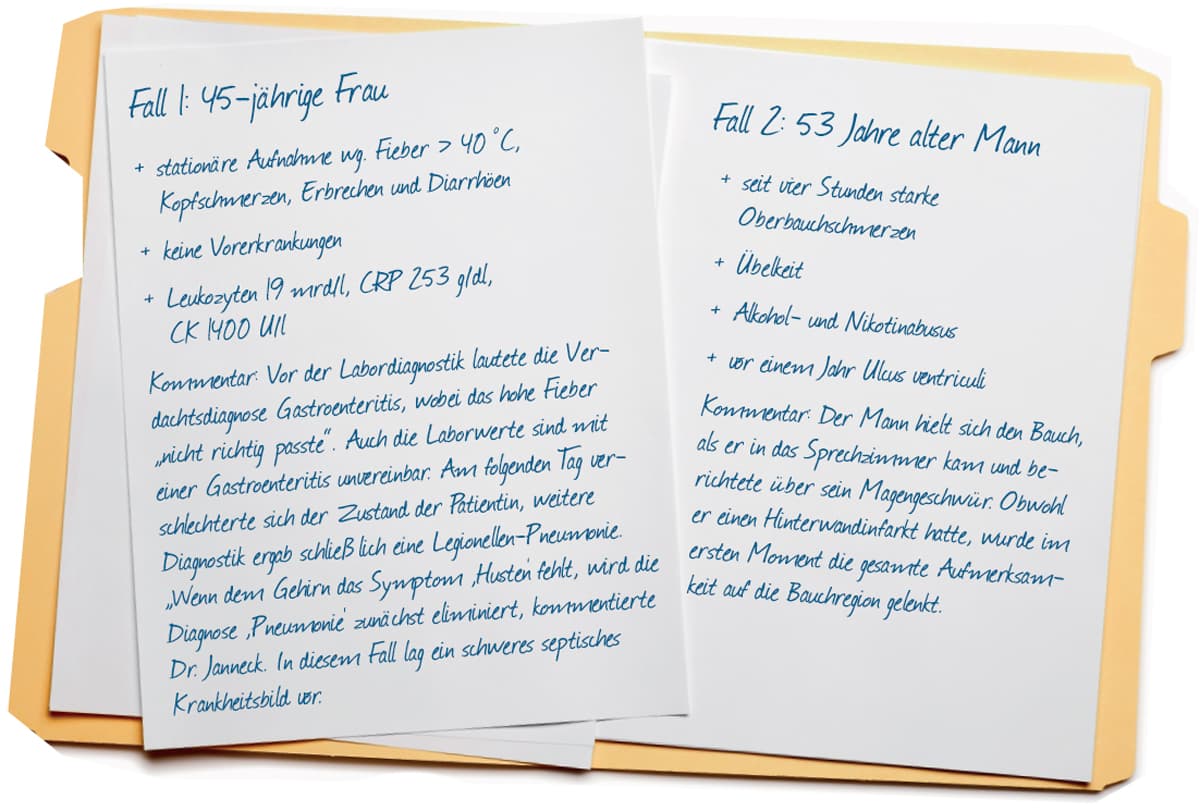 Fall 1: 45-jährige Frau
+ stationäre Aufnahme wg. Fieber > 40 °C,
Kopfschmerzen, Erbrechen und Diarrhöen
+ keine Vorerkrankungen
+ Leukozyten 19 mrd/l, CRP 253 g/dl,
CK 1400 U/l
Kommentar: Vor der Labordiagnostik lautete die Ver-
dachtsdiagnose Gastroenteritis, wobei das hohe Fieber
„nicht richtig passte“. Auch die Laborwerte sind mit
einer Gastroenteritis unvereinbar. Am folgenden Tag ver-
schlechterte sich der Zustand der Patientin, weitere
Diagnostik ergab schließlich eine Legionellen-Pneumonie.
„Wenn dem Gehirn das Symptom ‚Husten‘ fehlt, wird die
Diagnose ‚Pneumonie‘ zunächst eliminiert, kommentierte
Dr. Janneck. In diesem Fall lag ein schweres septisches
Krankheitsbild vor.
Fall 2: 53 Jahre alter Mann
+ seit vier Stunden starke
Oberbauchschmerzen
+ Übelkeit
+ Alkohol- und Nikotinabusus
+ vor einem Jahr Ulcus ventriculi
Kommentar: Der Mann hielt sich den Bauch,
als er in das Sprechzimmer kam und be-
richtete über sein Magengeschwür. Obwohl
er einen Hinterwandinfarkt hatte, wurde im
ersten Moment die gesamte Aufmerksam-
keit auf die Bauchregion gelenkt.